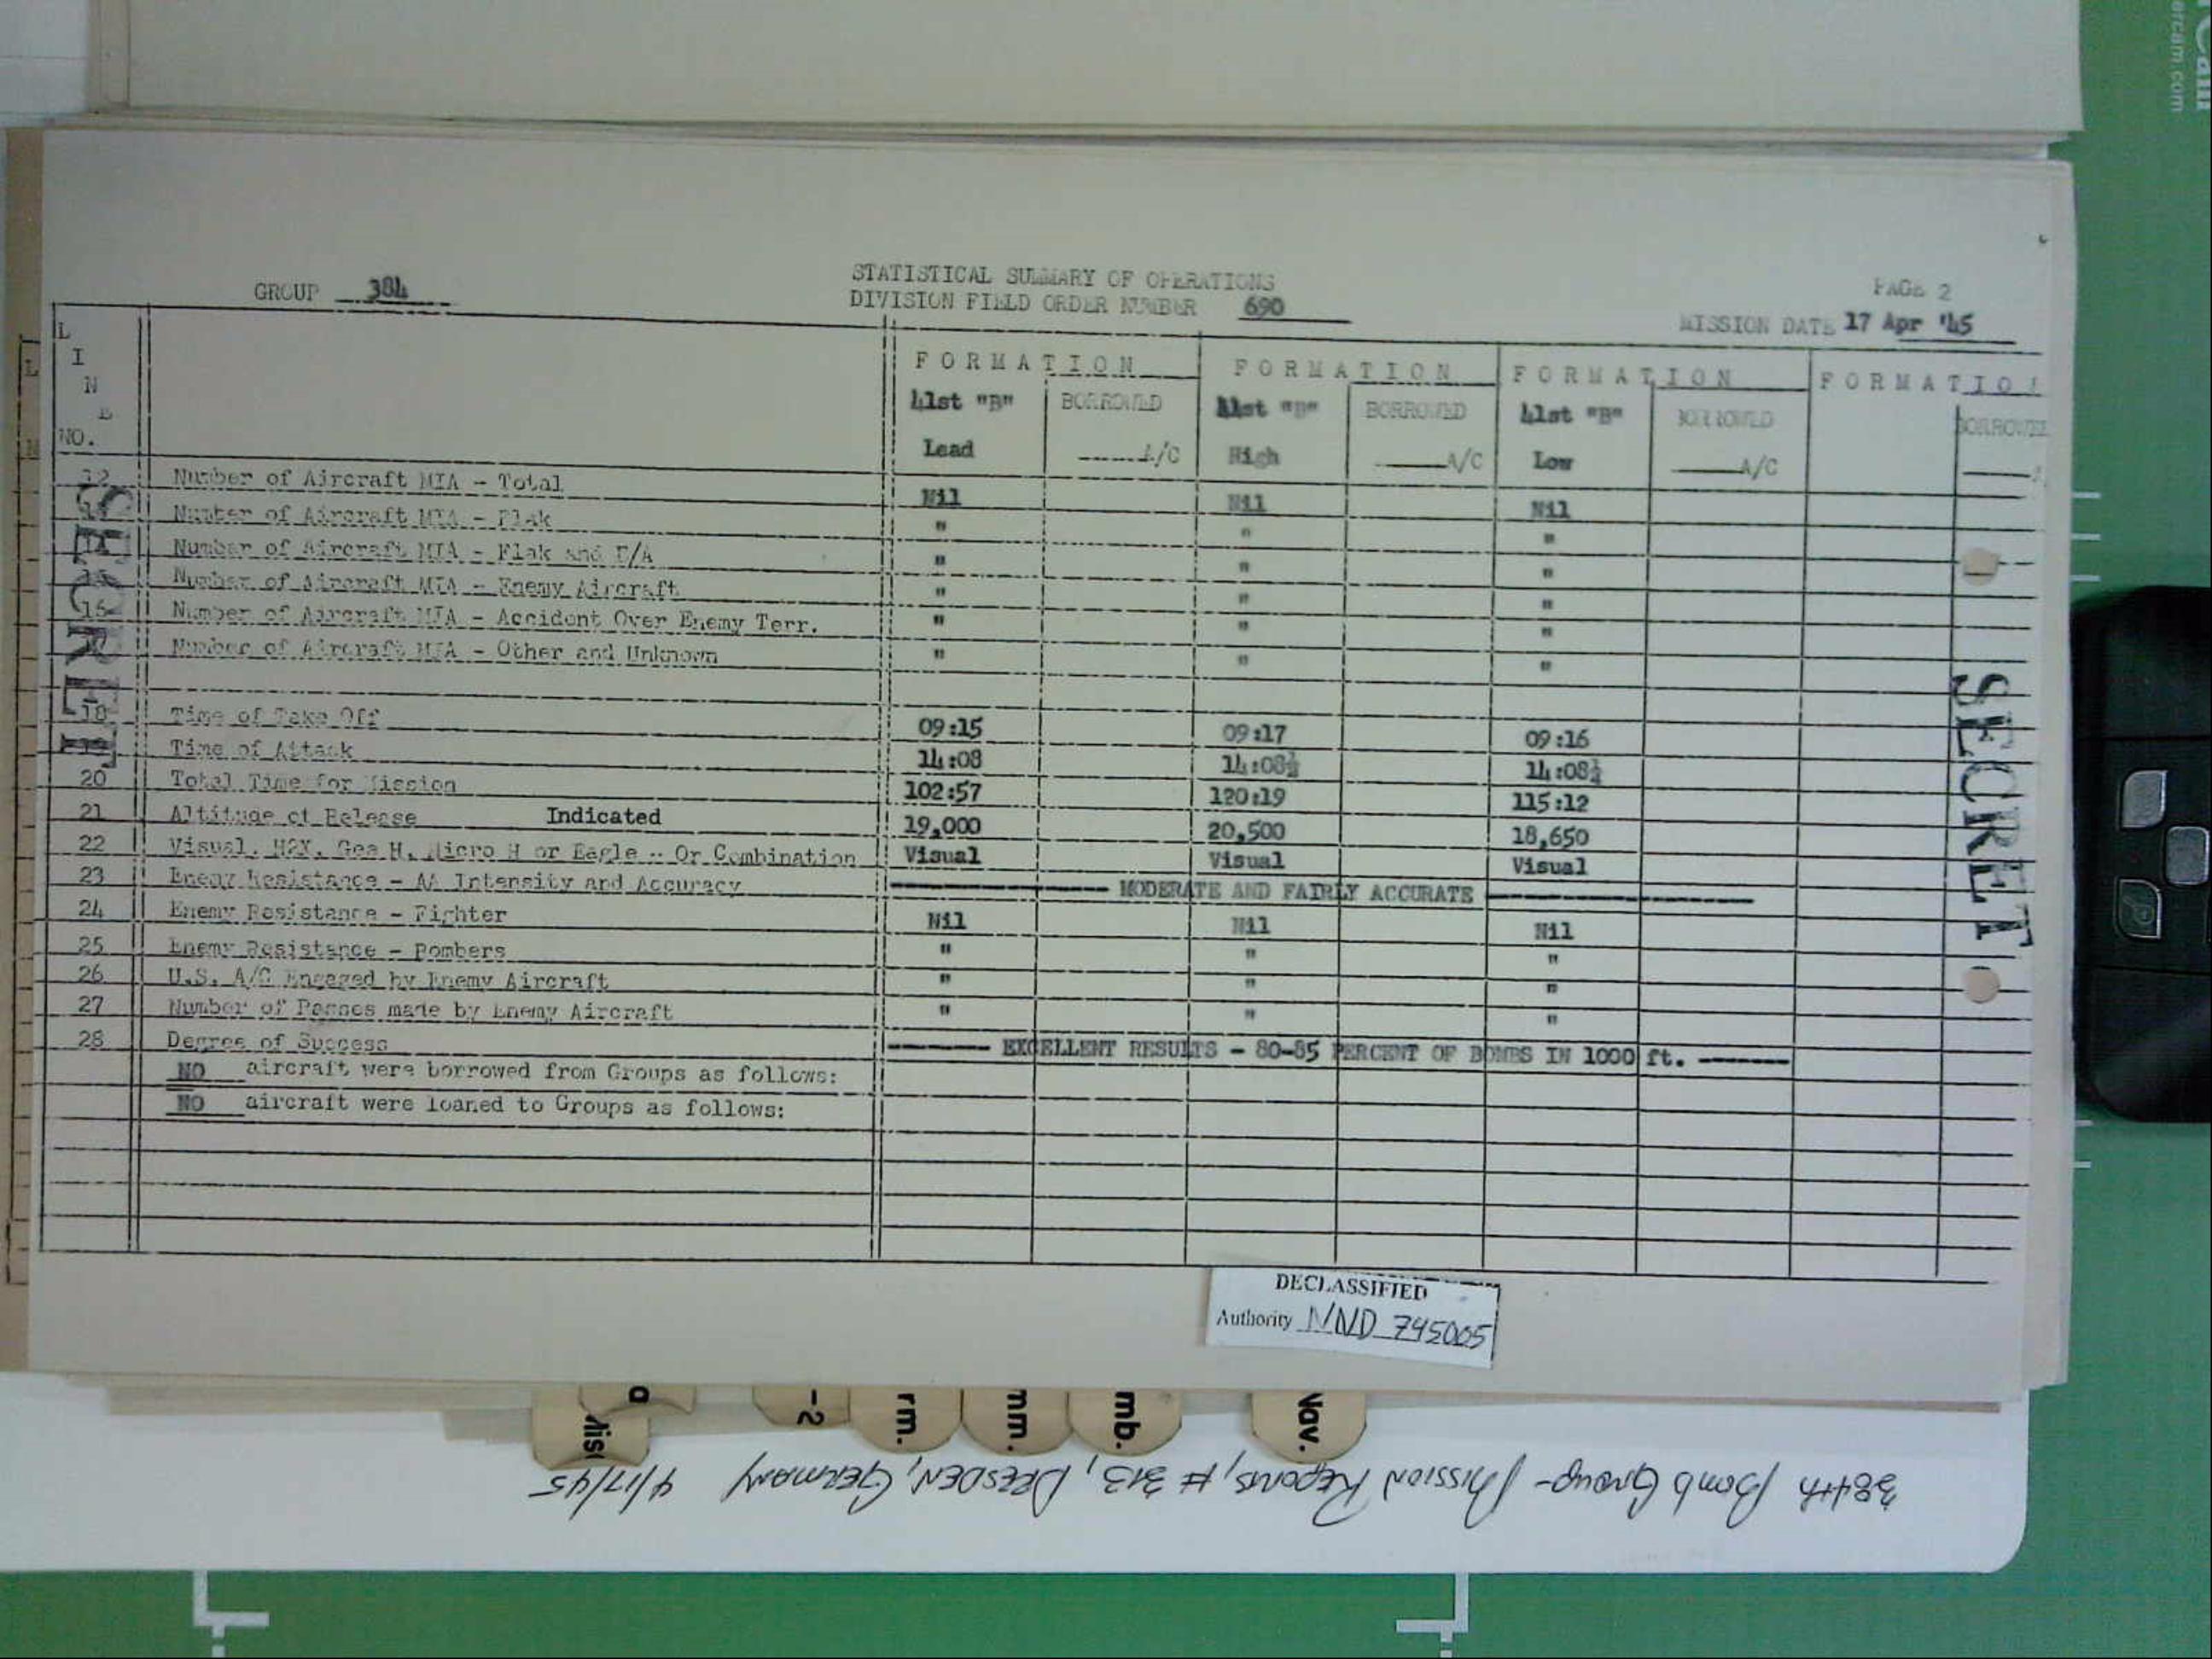 STATISTICAL SUMMARY OF OPERATIONS
GROUP 384
DIVISION FIELD ORDER NUMBER 690
PAGE 2
MISSION DATE 17 Apr '45
LINE NO.
FORMATION FORMATION FORMATION FORMATIO
41st "B" Lead BORROWED A/C 41st "B" High BORROWED A/C 41st "B" Low BORROWED A/C BORROWE
12 Number of Aircraft MIA - Total Nil Nil Nil
Number of Aircraft MIA - Flak " " "
14 Number of Aircraft MIA - Flak and E/A " " "
Number of Aircraft MIA - Enemy Aircraft " " "
16 Number of Aircraft MIA - Accident Over Enemy Terr. " " "
Number of Aircraft MIA - Other and Unknown " " "
18 Time of Take Off 09:15 09:17 09:16
Time of Attack 14:08 14:08½ 14:08½
20 Total Time for Mission 102:57 120:19 115:12
21 Altitude of Release Indicated 19,000 20,500 18,650
22 Visual, H2X, Gee H, Micro H or Eagle - Or Combination Visual Visual Visual
23 Enemy Resistance - AA Intensity and Accuracy MODERATE AND FAIRLY ACCURATE
24 Enemy Resistance - Fighter Nil Nil Nil
25 Enemy Resistance - Bombers " " "
26 U.S. A/C Engaged by Enemy Aircraft " " "
27 Number of Passes made by Enemy Aircraft " " "
28 Degree of Success EXCELLENT RESULTS - 80-85 PERCENT OF BOMBS IN 1000 ft.
NO aircraft were borrowed from Groups as follows:
NO aircraft were loaned to Groups as follows:
SECRET
SECRET
DECLASSIFIED
Authority NND 745005
a
-2
rm.
mm.
mb.
Nav.
384th Bomb Group - Mission Reports, # 313, DRESDEN, GERMANY 4/17/45
ercam.com